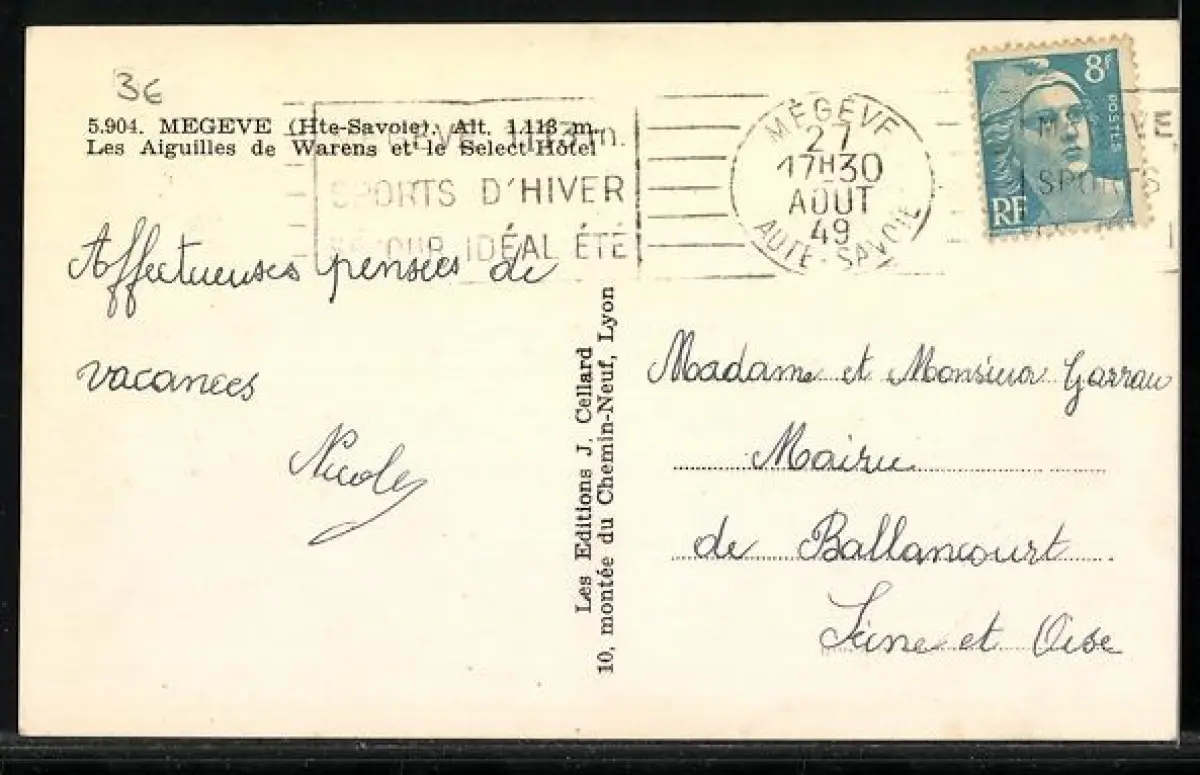 3€
5.904. MEGEVE (Hte-Savoie). Alt. 1.113 m.
Les Aiguilles de Warens et le Select-Hôtel
EVE 1113 m.
SPORTS D'HIVER
SÉJOUR IDÉAL ÉTÉ
MÉGÈVE
27
17H30
AOUT
49
AUTE-SAVOIE
8F
POSTES
RF
SPORTS
Affectueuses pensées de
vacances
Nicole
Les Editions J. Cellard
10, montée du Chemin-Neuf, Lyon
Madame et Monsieur Garrau
Mairie
de Ballancourt
Seine et Oise